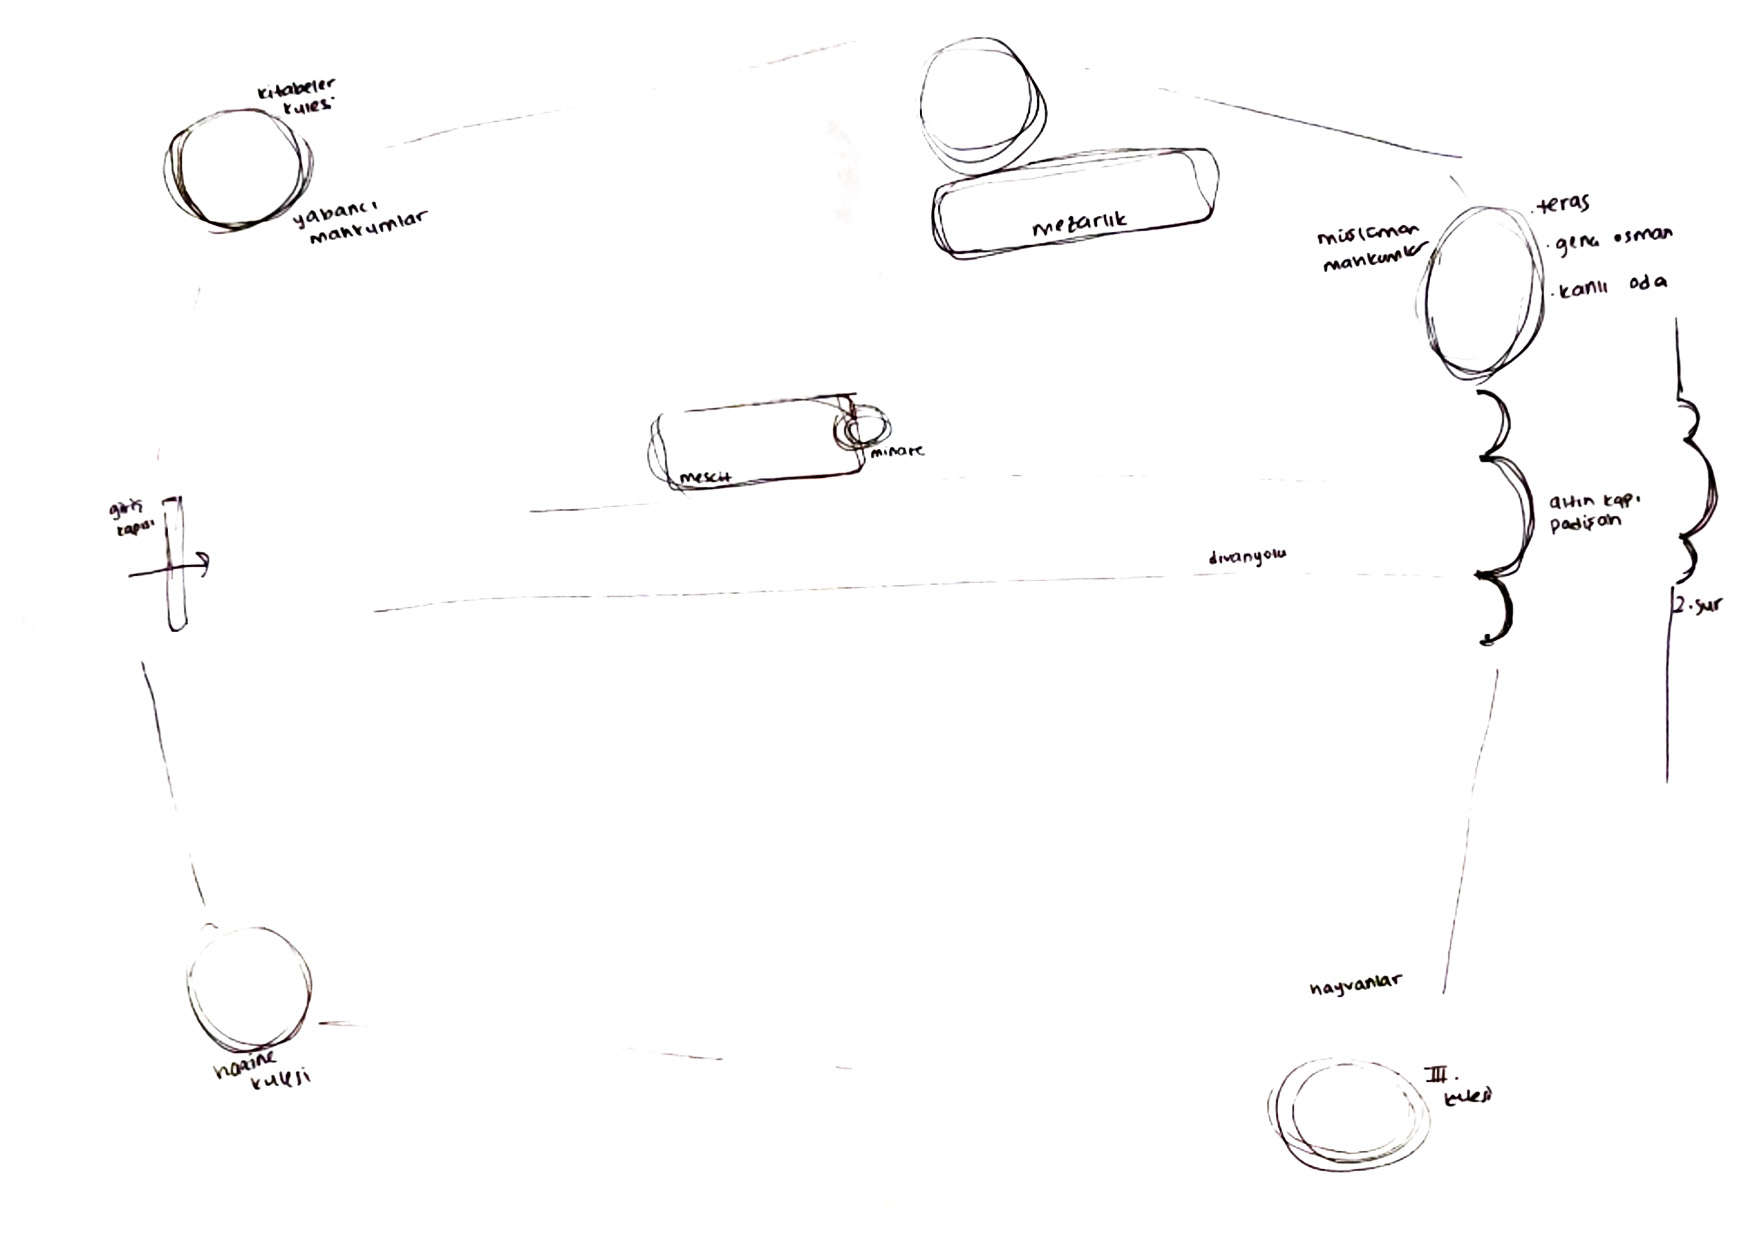 kitabeler
kulesi
yabancı
mahkumlar
mezarlık
müslüman
mahkumlar
.teras
.genç osman
.kanlı oda
mescit
minare
giriş
kapısı
altın kapı
padişah
divanyolu
2.sur
hayvanlar
hazine
kulesi
III.
kulesi